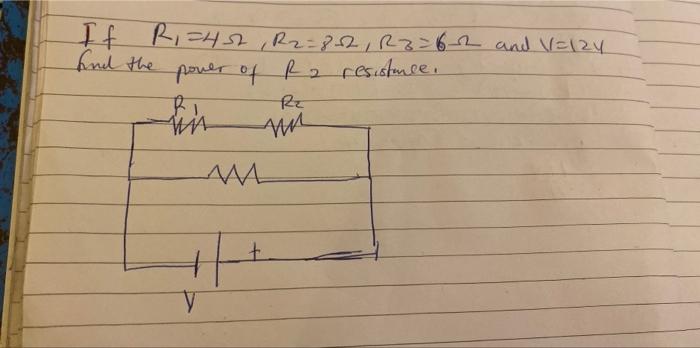 If R₁=4Ω, R₂=8Ω, R3=6Ω and V=12V
find the power of R2 resistance.
R₁ R₂
+
V